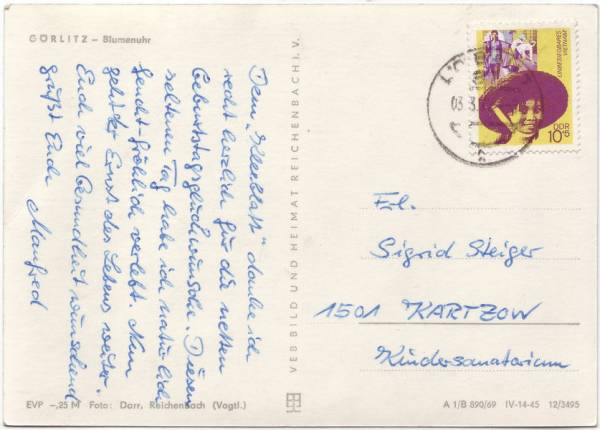 GÖRLITZ – Blumenuhr
Dem „Kleeblatt“ danke ich
recht herzlich für die netten
Geburtstagsglückwünsche. Diesen
seltenen Tag habe ich natürlich
feucht-fröhlich verlebt. Nun
geht der Ernst des Lebens weiter.
Euch viel Gesundheit wünschend
grüßt Euch
Manfred
VEB BILD UND HEIMAT REICHENBACH I. V.
UNBESIEGBARES
VIETNAM
DDR
10
03.3.
Frl.
Sigrid Steiger
1501 KARTZOW
Kindersanatorium
EVP –,25 M Foto: Darr, Reichenbach (Vogtl.)
A 1/B 890/69 IV-14-45 12/3495